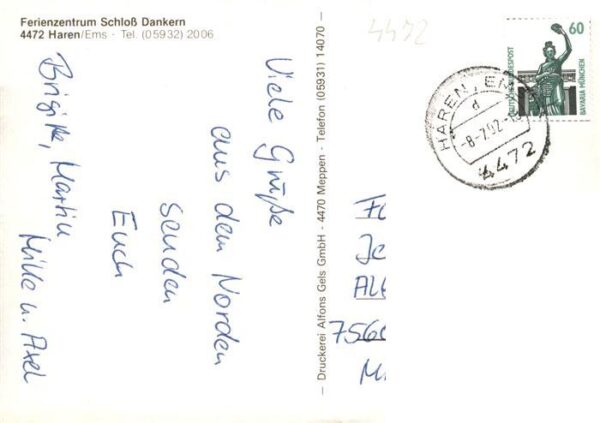 Ferienzentrum Schloß Dankern
4472 Haren/Ems - Tel. (05932) 2006
Viele Grüße
aus dem Norden
senden
Euch
Brigitte, Martin
Milke u. Axel
— Druckerei Alfons Gels GmbH - 4470 Meppen - Telefon (05931) 14070 —
4472
60
DEUTSCHE BUNDESPOST
BAVARIA MÜNCHEN
HAREN, EM
d
-8-7.92-
4472